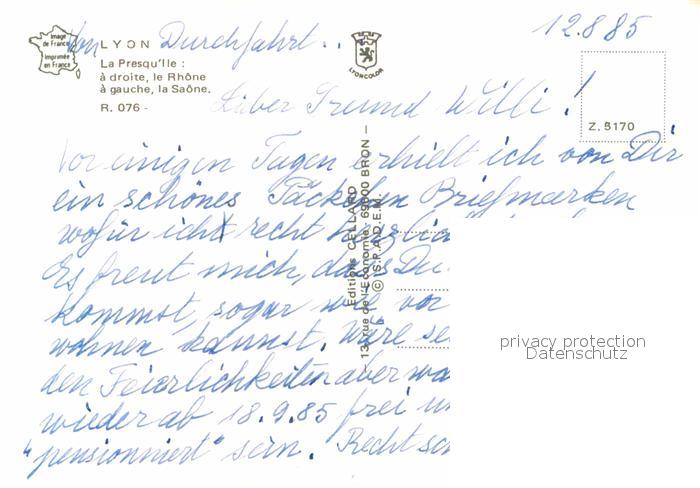 12.8.85
Von LYON Durchfahrt..
Image
de France
Imprimée
en France
La Presqu'Ile :
à droite, le Rhône
à gauche, la Saône.
R. 076 -
LYONCOLOR
Z. 5170
Liber Freund Willi!
Vor einigen Tagen erhielt ich von Dir
ein schönes Päckchen Briefmarken
wofür ich recht herzlich
Es freut mich, dass Du
kommst, sogar vor
wohnen kannst. Wäre
den Feierlichkeiten aber
wieder ab 18.9.85 frei
"pensionniert" sein. Recht
Editions CELLARD
- 13, rue de l'Economie, 69500 BRON -
© S.P.A.D.E.M.
privacy protection
Datenschutz